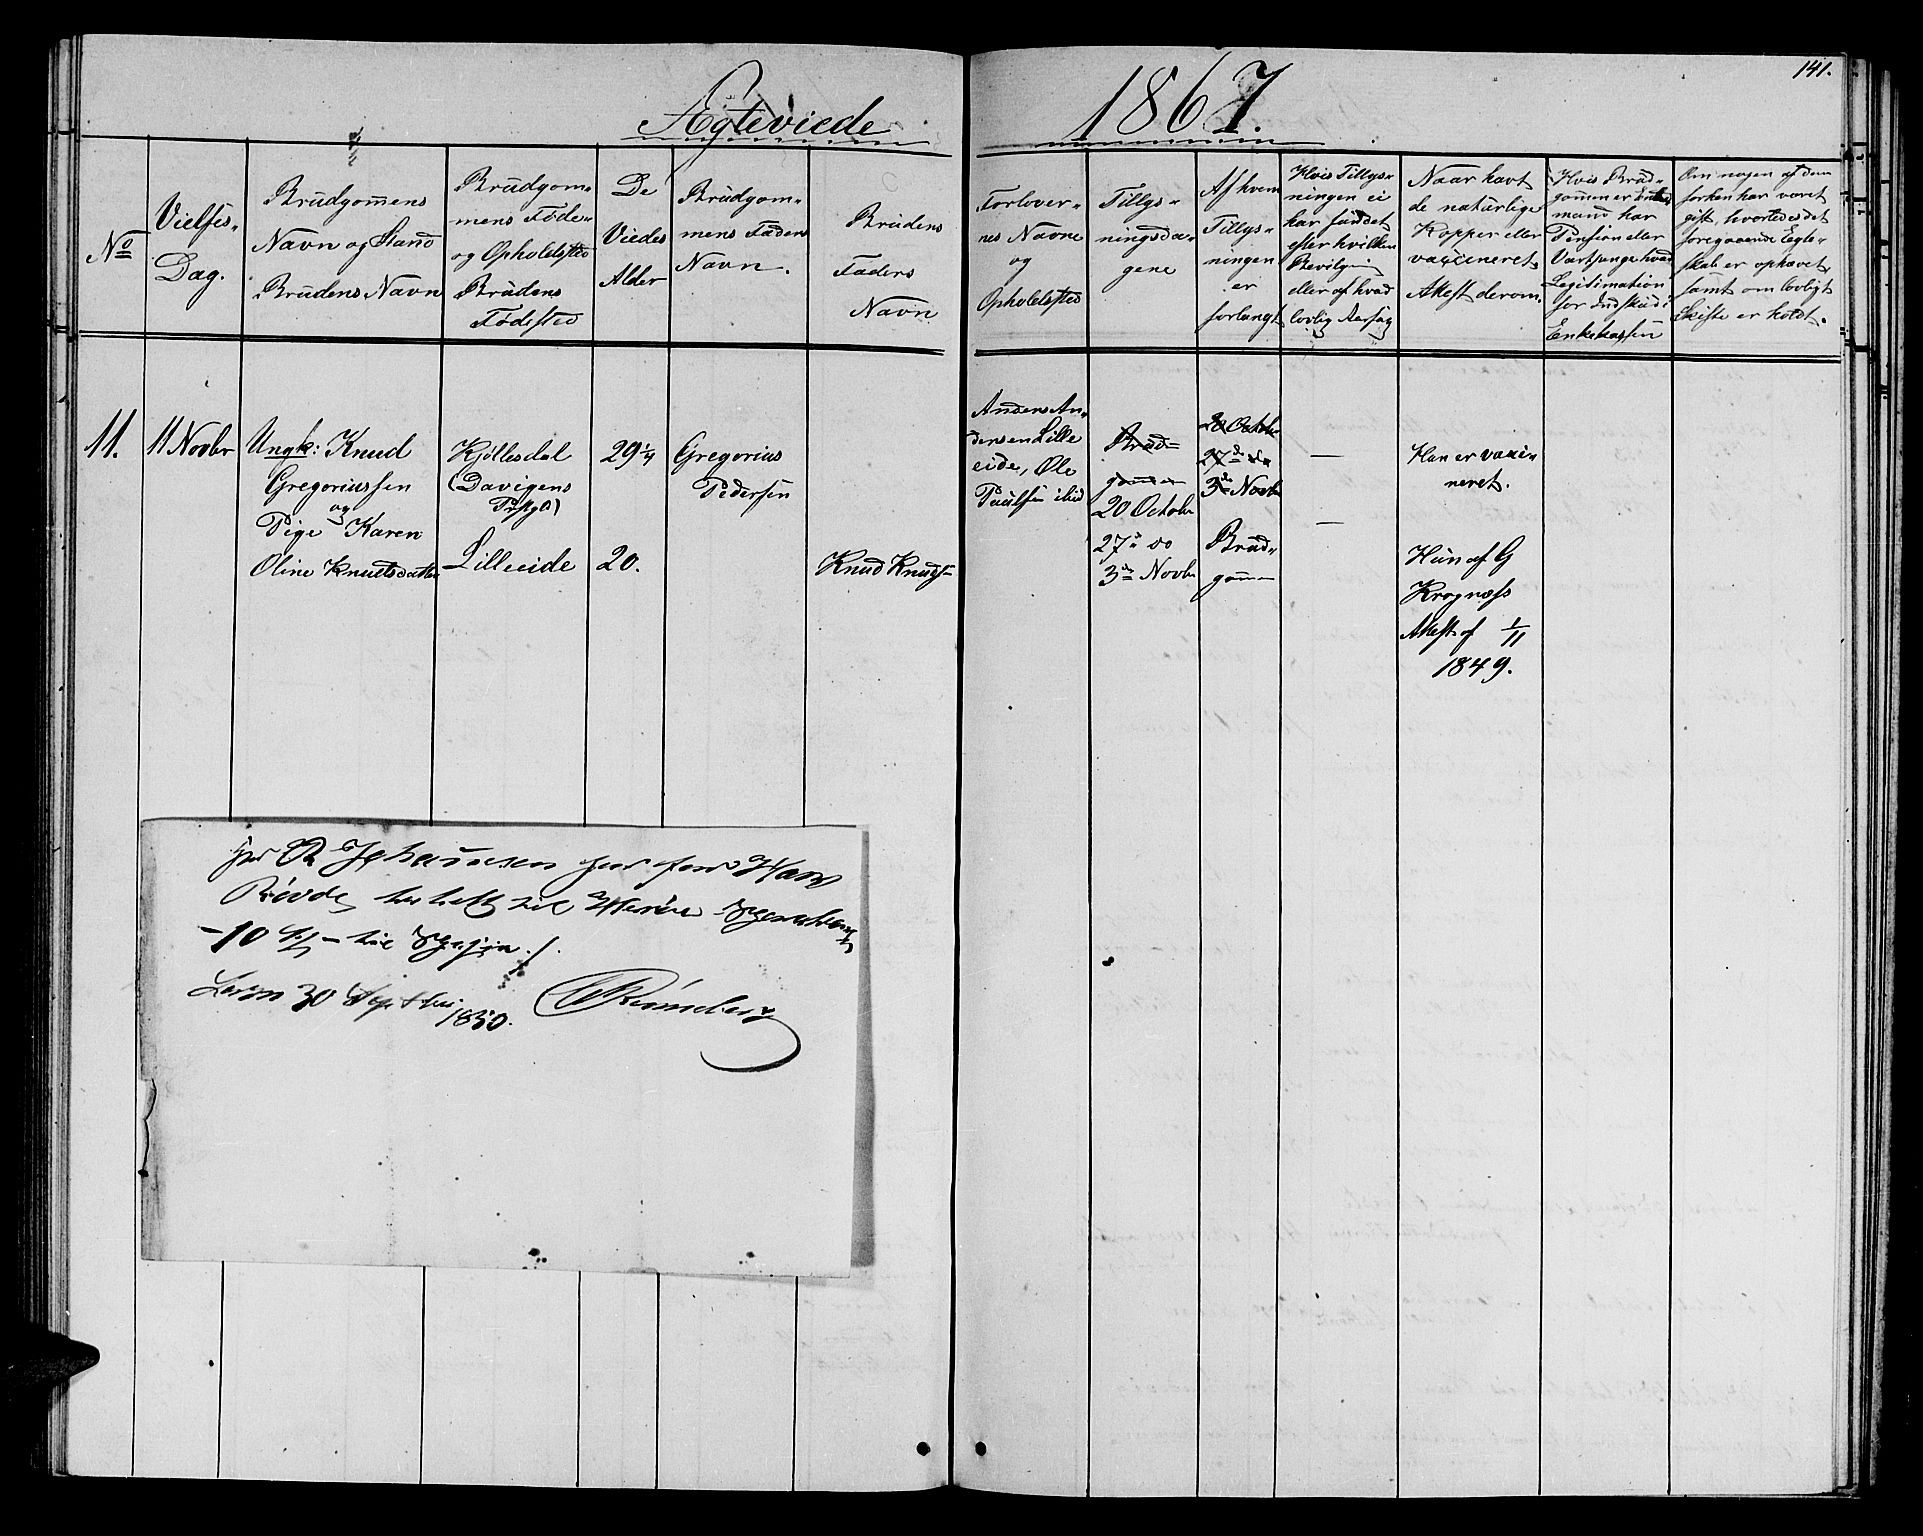 141.
Ægteviede 1867.
No
Vielses-
Dag.
Brudgommens
Navn og Stand
Brudens Navn
Brudgom-
mens Føde-
og Opholdsted
Brudens
Fødested
De
Viedes
Alder
Brudgom-
mens Faders
Navn.
Brudens
Faders
Navn
Forlover-
nes Navne
og
Opholdsted
Tillys-
ningsda-
gene
Af hvem
Tillys-
ningen
er
forlangt
Hvis Tillys-
ningen ei
har fundet
efter hvilken
Bevilgning
eller af hvad
lovlig Aarsag
Naar havt
de naturlige
Kopper eller
vaccineret.
Attest derom.
Hvis Brud-
gommen er Enke
mand har
Pension eller
Vartpenge hvad
Legitimation
for Indskud i
Enkekassen
Om nogen af dem
forhen har været
gift, hvorledes det
foregaaende Ægte-
skab er ophævet,
samt om lovligt
Skifte er holdt.
11.
11 Novbr
Ungk: Knud
Gregoriussen
og
Pige Karen
Oline Knudsdatter
Kjøllesdal
(Davigens
Prstgd)
Lilleeide
29 1/4
20.
Gregorius
Pedersen
Knud Knuds
Anders An-
dersen Lille
eide, Ole
Paulsen ibid
Brud-
gommen
20 Octobr
27de do
3de Novbr
20 Octobr
27de do
3de Novbr
Brud-
gom
—
—
Han er vacci-
neret.
Hun af G
Krognæss
Attest af 1/11
1849.
Rovde
-10 til
30 Septbr
1850.